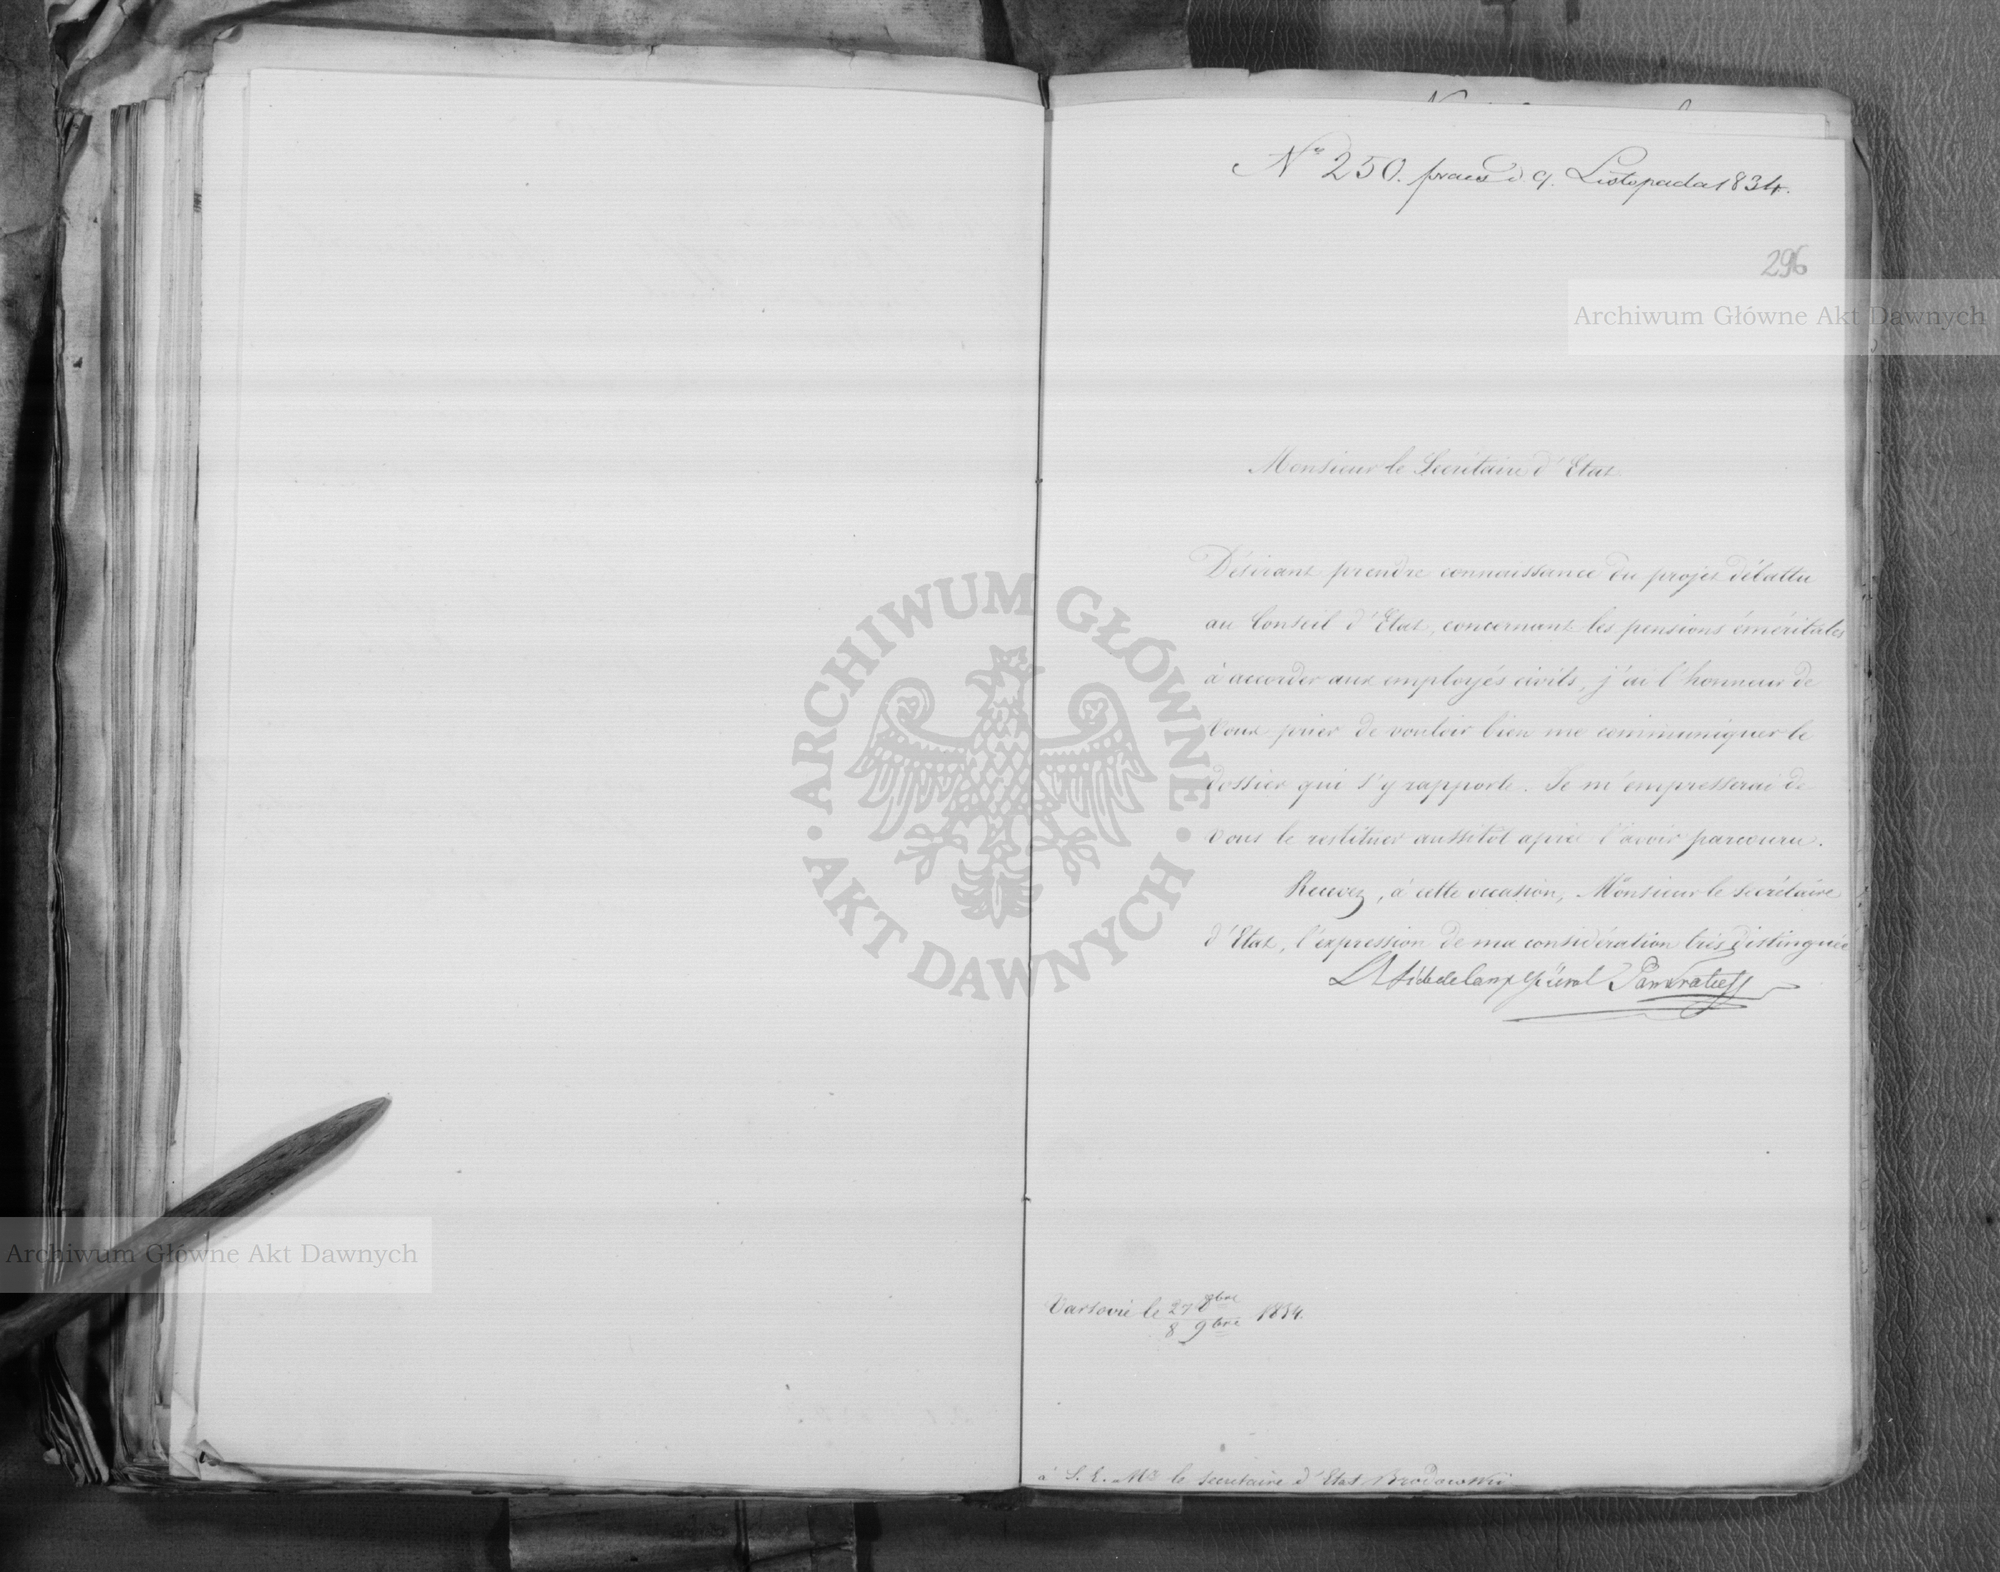 No 250. praes d 9. Listopada 1834.
296
Archiwum Główne Akt Dawnych
Monsieur le Secrétaire d'Etat.
Désirant prendre connaissance du projet débattu
au Conseil d'Etat, concernant les pensions éméritales
à accorder aux employés civils, j'ai l'honneur de
Vous prier de vouloir bien me communiquer le
dossier qui s'y rapporte. Je m'empresserai de
Vous le restituer aussitôt après l'avoir parcouru.
Recevez, à cette occasion, Monsieur le secrétaire
d'Etat, l'expression de ma considération très distinguée
L'Aide de Camp Général Pankratieff
Varsovie le 27 8bre / 8 9bre 1834.
à S. E. Mr le Secrétaire d'Etat Brodowski
ARCHIWUM GŁÓWNE
AKT DAWNYCH
Archiwum Główne Akt Dawnych